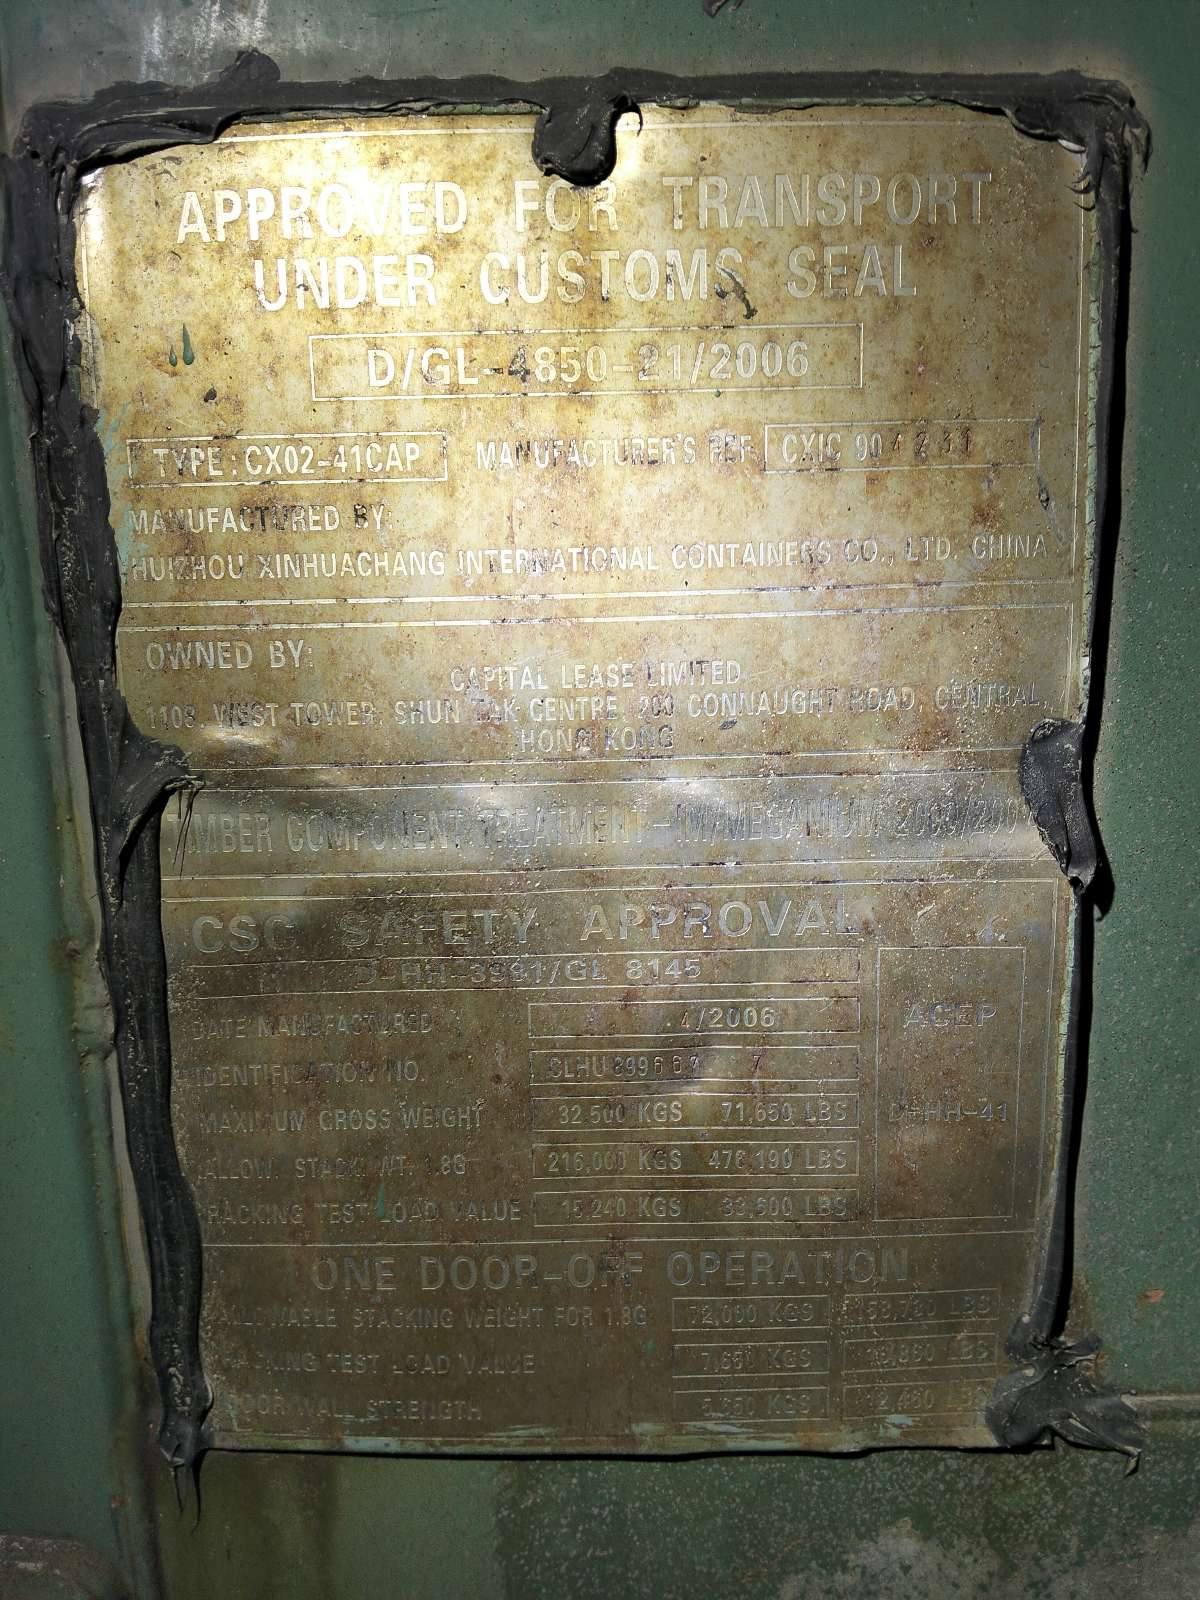 APPROVED FOR TRANSPORT
UNDER CUSTOMS SEAL
D/GL-4850-21/2006
TYPE: CX02-41CAP MANUFACTURER'S REF. CXIC 90
MANUFACTURED BY:
HUIZHOU XINHUACHANG INTERNATIONAL CONTAINERS CO., LTD. CHINA
OWNED BY:
CAPITAL LEASE LIMITED
1108, WEST TOWER, SHUN TAK CENTRE, 200 CONNAUGHT ROAD, CENTRAL,
HONG KONG
TIMBER COMPONENT TREATMENT-IM/MEGANIUM 2000/
CSC SAFETY APPROVAL
D-HH-3981/GL 8145
DATE MANUFACTURED 4/2006
ACEP
IDENTIFICATION NO. CLHU 8996 7
MAXIMUM GROSS WEIGHT 32,500 KGS 71,650 LBS
D-HH-41
ALLOW. STACK. WT. 1.8G 216,000 KGS 476,190 LBS
RACKING TEST LOAD VALUE 15,240 KGS 33,600 LBS
ONE DOOR-OFF OPERATION
ALLOWABLE STACKING WEIGHT FOR 1.8G 72,000 KGS LBS
RACKING TEST LOAD VALUE KGS LBS
DOOR WALL STRENGTH KGS